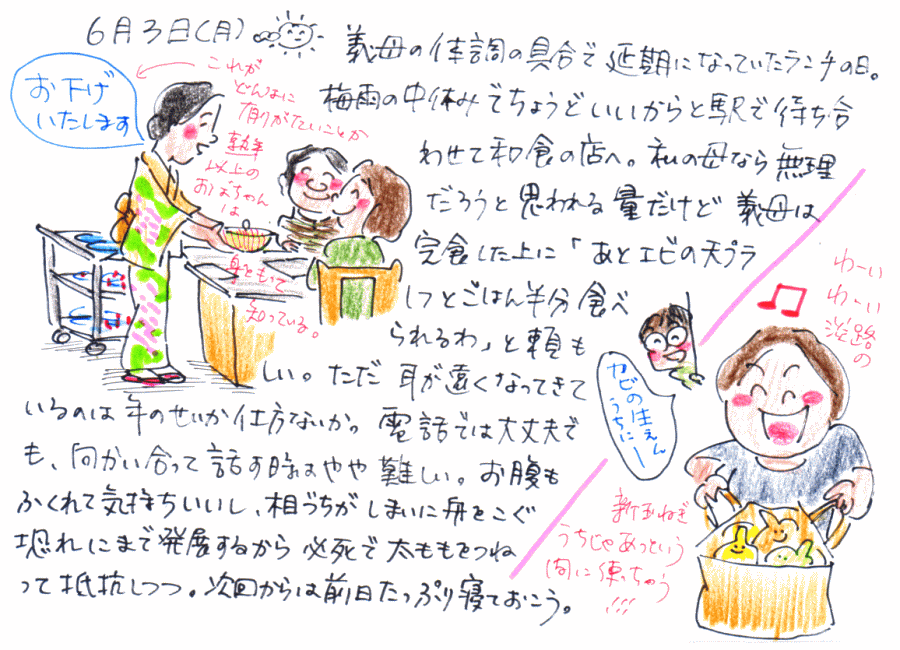 6月3日(月)
義母の体調の具合で延期になっていたランチの日。
梅雨の中休みでちょうどいいからと駅で待ち合
わせて和食の店へ。私の母なら無理
だろうと思われる量だけど義母は
完食した上に「あとエビの天プラ
1つとごはん半分食べ
られるわ」と頼も
しい。ただ耳が遠くなってきて
いるのは年のせいか仕方ないか。電話では大丈夫で
も、向かい合って話す時はやや難しい。お腹も
ふくれて気持ちいいし、相づちがしまいに舟をこぐ
恐れにまで発展するから必死で太ももをつね
って抵抗しつつ。次回からは前日たっぷり寝ておこう。
お下げ
いたします
これが
どんなに
有りがたいことか
熟年
以上の
おばちゃん
は
身をもって
知っている。
わーい
わーい
淡路の
新玉ねぎ
うちじゃあっという
間に使っちゃう
!!!
カビの生えん
うちにー